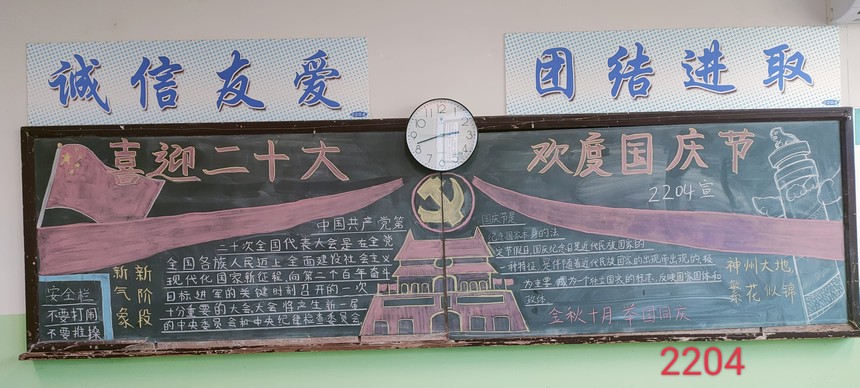 诚信友爱
团结进取
喜迎二十大
欢度国庆节
2204宣
中国共产党第
二十次全国代表大会是在全党
全国各族人民迈上全面建设社会主义
现代化国家新征程,向第二个百年奋斗
目标进军的关键时刻召开的一次
十分重要的大会.大会将产生新一届
的中央委员会和中央纪律检查委员会
新气象
新阶段
安全栏
不要打闹
不要推搡
国庆节是
定节假日,国庆纪念日是近代民族国家的
一种特征,是伴随着近代民族国家的出现而出现的,较
为重要.成为一个独立国家的标志,反映国家国体和
政体
神州大地
繁花似锦
金秋十月 举国同庆
12
1
2
3
4
5
6
7
8
9
10
11
2204